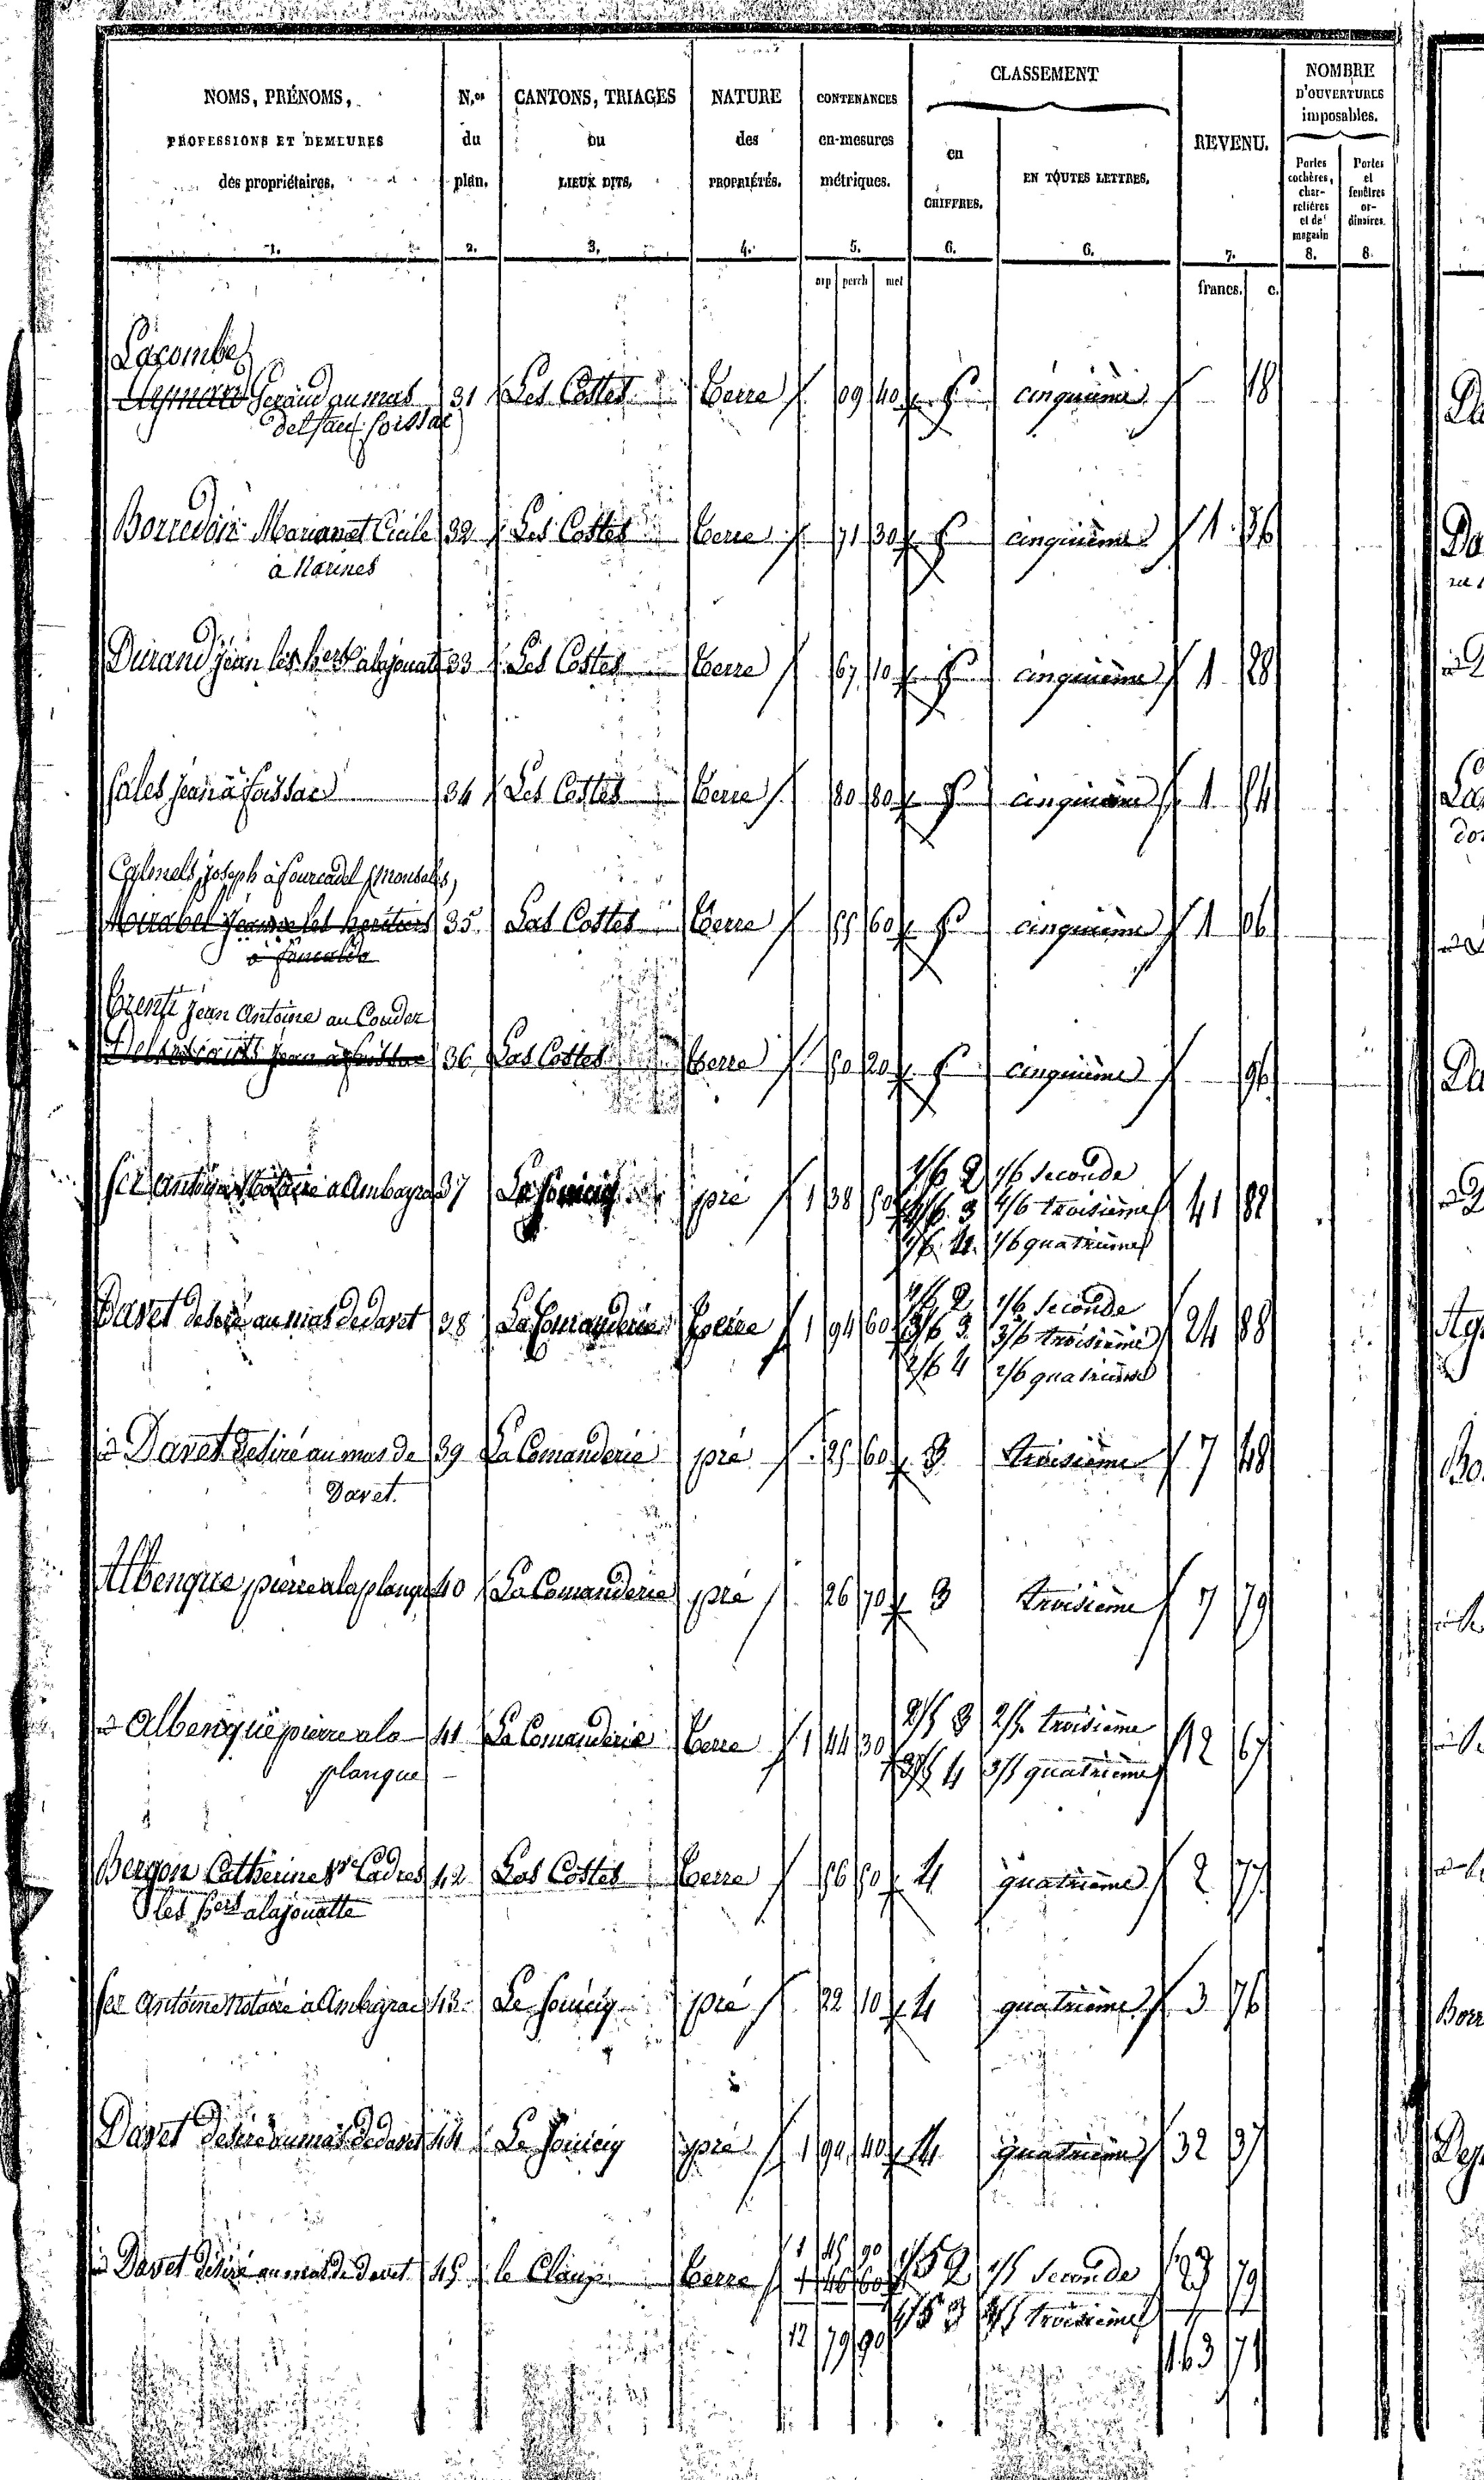 NOMS, PRÉNOMS,
PROFESSIONS ET DEMEURES
des propriétaires.
1.
N.os
du
plan.
2.
CANTONS, TRIAGES
ou
LIEUX DITS.
3.
NATURE
des
PROPRIÉTÉS.
4.
CONTENANCES
en mesures
métriques.
5.
CLASSEMENT
en
CHIFFRES.
6.
EN TOUTES LETTRES.
6.
REVENU.
7.
NOMBRE
D'OUVERTURES
imposables.
Portes
cochères,
char-
retières
et de
magasin
8.
Portes
et
fenêtres
or-
dinaires.
8.
arp perch met
francs. c.
Lacombe
Geraud au mas 31 Les Costes Terre 09 40 5 cinquième 18
del sau foissac
Borredon Marianet Cicile 32 Les Costes Terre 71 30 5 cinquième 1 36
à Marines
Durand jean les hers alajouatte 33 Les Costes Terre 67 10 5 cinquième 1 28
Sales jean à foissac 34 Les Costes Terre 80 80 5 cinquième 1 54
Calmels joseph à fourcadel
Mirabel les heritiers 35 Las Costes Terre 55 60 5 cinquième 1 06
jean Antoine au Couder
36 Las Costes Terre 50 20 5 cinquième 96
1/6 2 1/6 Seconde
37 pré 1 38 50 4/6 3 4/6 troisième 41 82
1/6 4 1/6 quatrième
1/6 2 1/6 Seconde
Davet desiré au mas de davet 38 La Comanderie Terre 1 94 60 3/6 3 3/6 troisième 24 88
2/6 4 2/6 quatrième
Davet desiré au mas de 39 La Comanderie pré 25 60 3 troisième 7 48
Davet.
Albenque pierre alaplanque 40 La Comanderie pré 26 70 3 troisième 7 79
2/5 3 2/5 troisième
Albenque pierre ala 41 La Comanderie Terre 1 44 30 12 67
planque 3/5 4 3/5 quatrième
Bergon Catherine Ve Cadres 42 Las Costes Terre 56 50 4 quatrième 2 77
les hers alajouatte
Antoine Notaire à Ambeyrac 43 pré 22 10 4 quatrième 3 76
Davet desiré au mas de davet 44 pré 1 90 40 4 quatrième 32 37
1 45 90
Davet désiré au mas de davet 45 le Claux Terre 1 46 60 1/5 2 1/5 Seconde 23 79
4/5 3 4/5 troisième
12 79 90
163 71